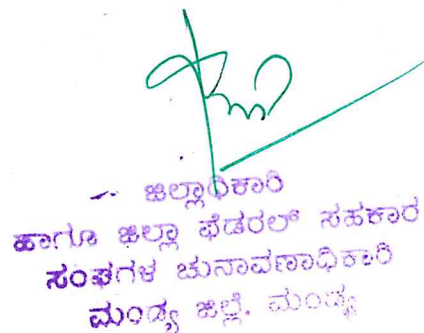 ಜಿಲ್ಲಾಧಿಕಾರಿ
ಹಾಗೂ ಜಿಲ್ಲಾ ಫೆಡರಲ್ ಸಹಕಾರ
ಸಂಘಗಳ ಚುನಾವಣಾಧಿಕಾರಿ
ಮಂಡ್ಯ ಜಿಲ್ಲೆ. ಮಂಡ್ಯ